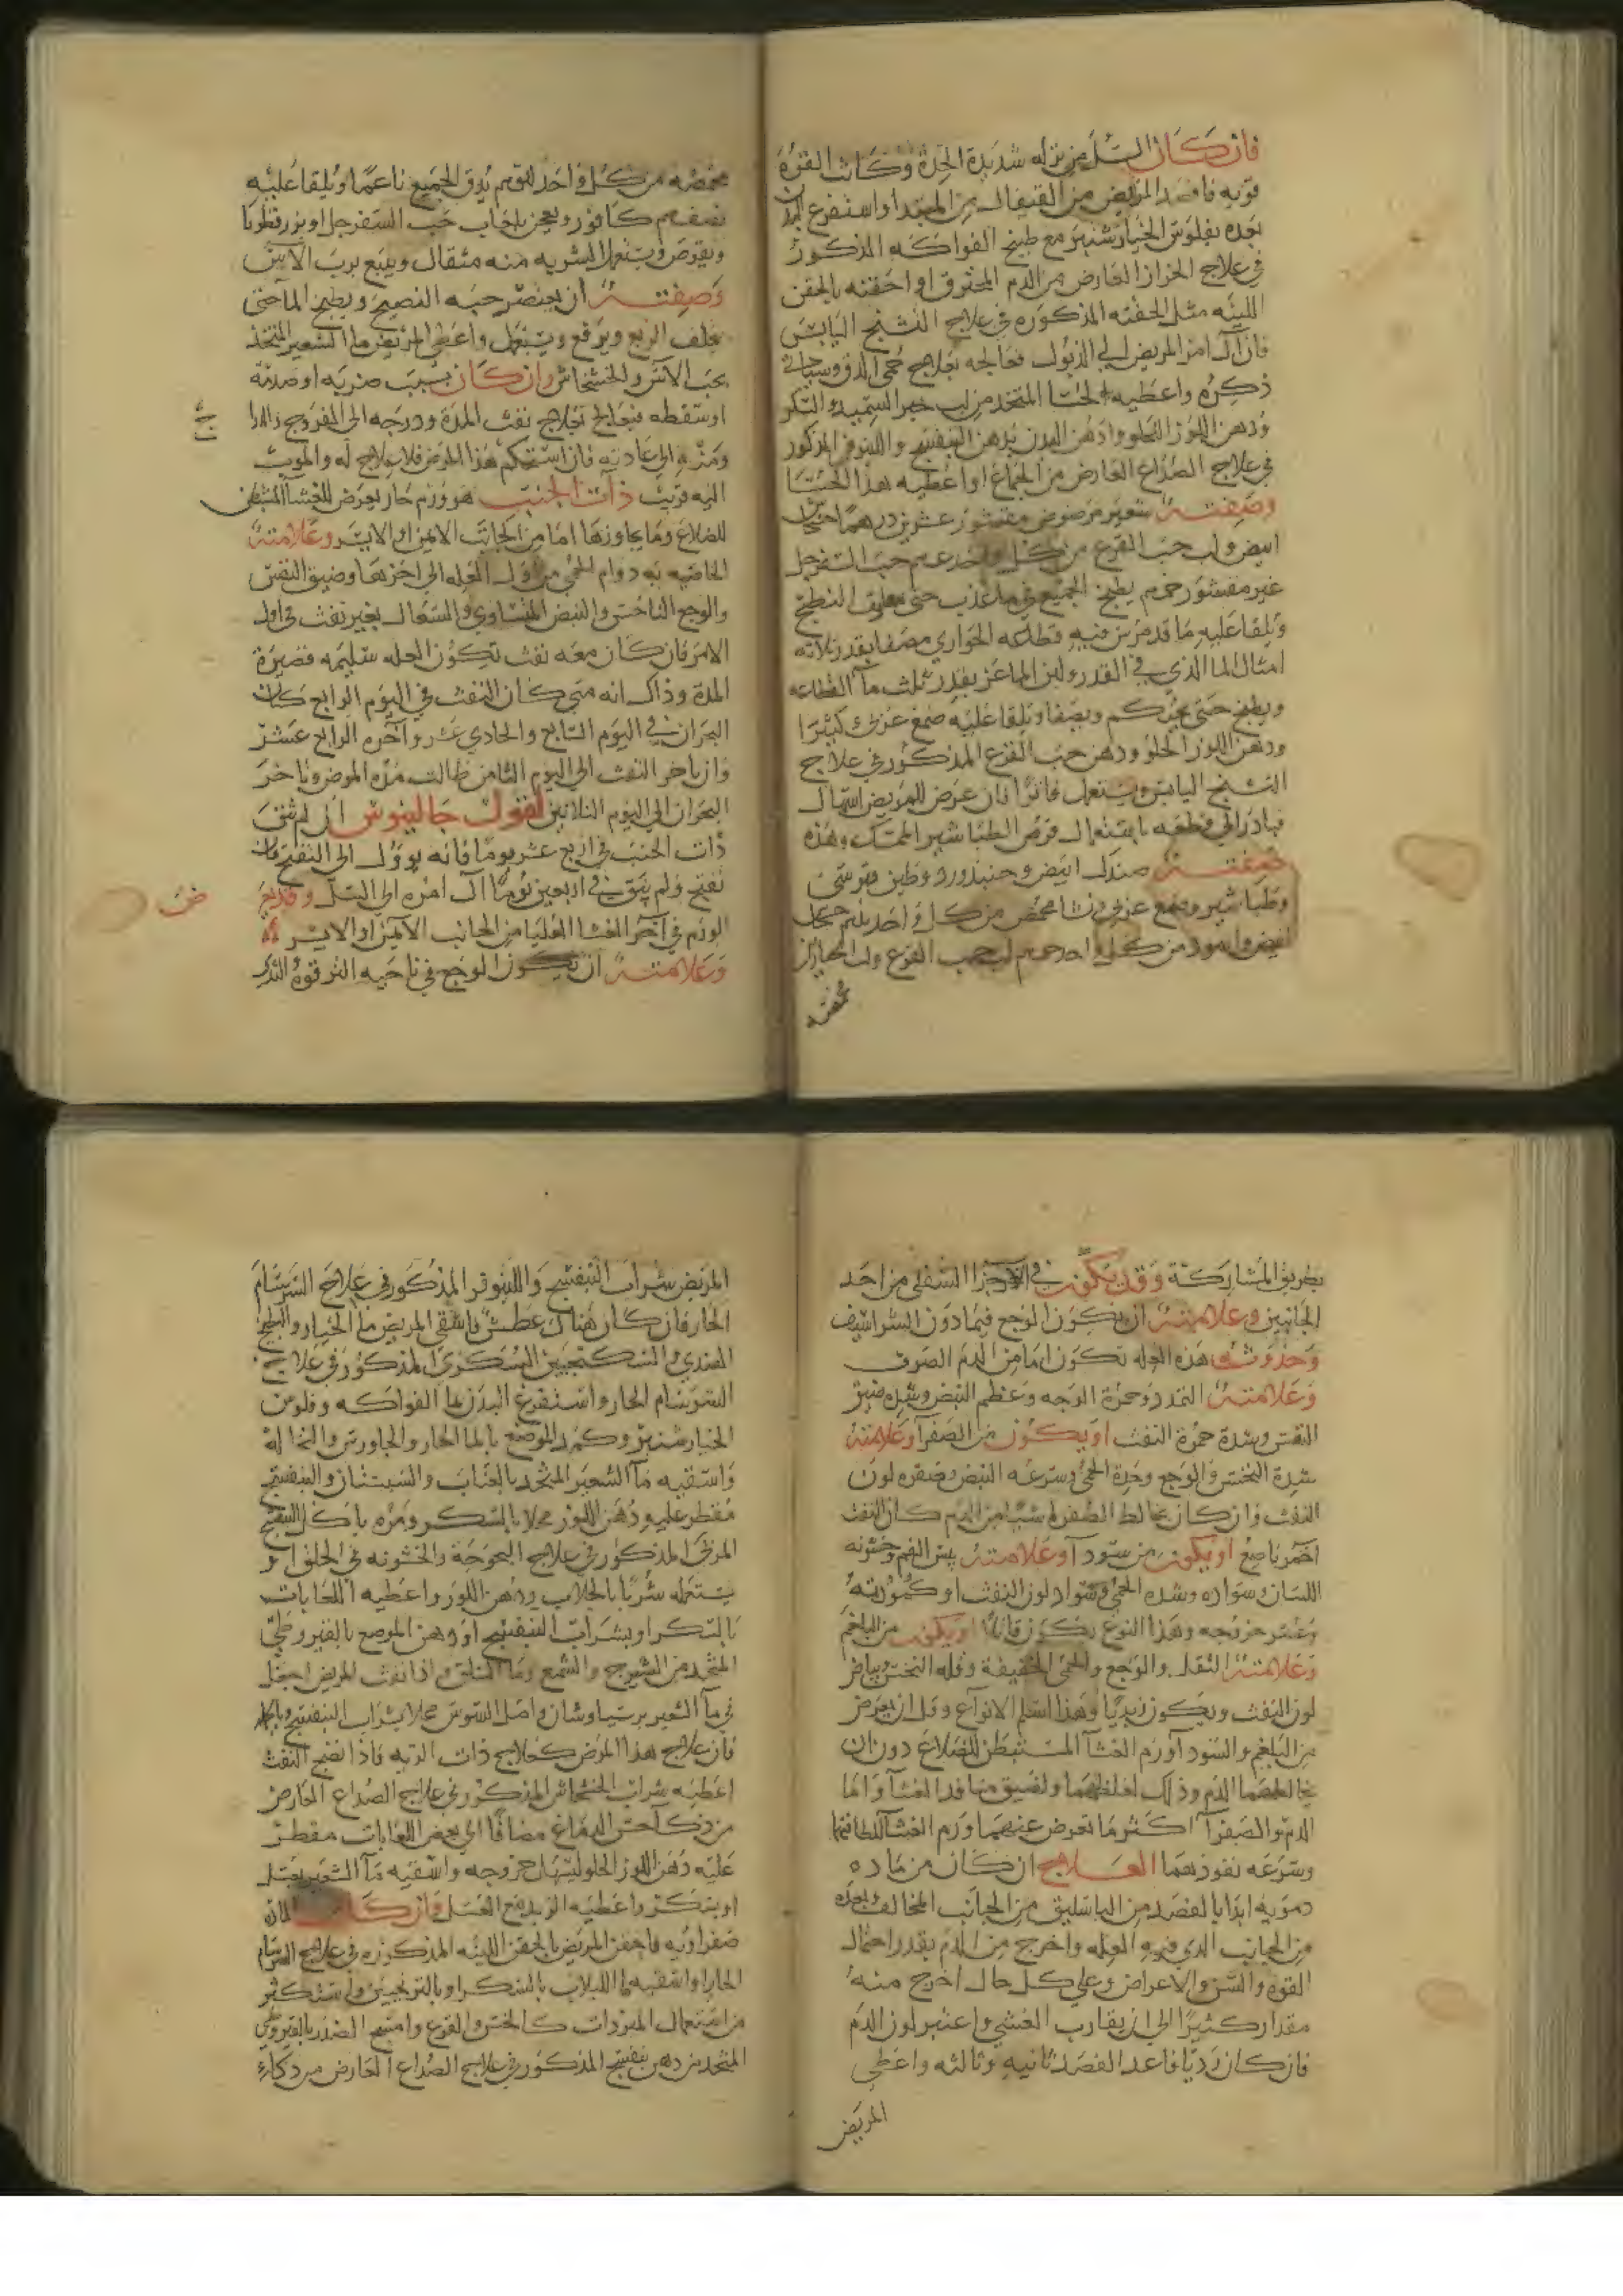 فان كان السل من نزله شديدة الحدة وكانت القوة
قويه فافصد المريض من القيفال من المبتدا واستفرغ البدن
بعده بفلوس الخيار شنبر مع طبيخ الفواكه المذكور
في علاج الحزاز العارض من الدم المحترق او احقنه بالحقن
اللينه مثل الحقنه المذكوره في علاج التشنج اليابس
فان آل امر المريض الي الذبول فعالجه بعلاج حمى الدق وسياتي
ذكره واعطيه الحسا المتخذ من لب خبز السميد والسكر
ودهن اللوز الحلو وادهن البدن بدهن البنفسج واللينوفر المذكور
في علاج الصداع العارض من الجماع او اعطيه هذا الحسا
وصفته شعير مرضوض مقشور عشرين درهما خشخاش
ابيض ولب حب القرع من كل واحد حب السفرجل
غير مقشور يطبخ الجميع في ما عذب حتى
ويلقا عليه ما قد مرس فيه الحواري مصفا بقدر ثلاثه
امثال الما الذي في القدر ولبن الماعز بقدر ثلث ما
ويطبخ حتى يحكم ويصفا ويلقا عليه صمغ عربي كثيرا
ودهن اللوز الحلو ودهن حب القرع المذكور في علاج
التشنج اليابس ويستعمل فاترا فان عرض للمريض اسهال
فبادر الي قطعه باستعمال قرص الطباشير الممسك وهذه
صفته صندل ابيض و وطين قبرسي
وطباشير وصمغ عربي ونشا محمص من كل واحد
ابيض واسود من كل واحد لب حب القرع ولب الخيار من
محمصه
محمصه من كل واحد يدق الجميع ناعما ويلقا عليه
نصف كافور ويعجن بلعاب حب السفرجل او بزر قطونا
ويقرص ويستعمل الشربه منه مثقال ويتبع برب الآس
وصفته ان يعتصر حبه النضيج ويطبخ الما حتى
يخلف الربع ويرفع ويستعمل واعط المريض ما الشعير المتخذ
بحب الآس والخشخاش وان كان بسبب ضربه او صدمه
او سقطه فيعالج بعلاج نفث المدة ودرجه الى
ومنه الى عادته فان استحكم هذا المرض فلا علاج له والموت
اليه قريب ذات الجنب هو ورم حار يعرض للغشا المستبطن
للضلاع وما يجاورها اما من الجانب الايمن او الايسر وعلامته
الخاصيه به دوام الحمى من اول العله الى اخرها وضيق النفس
والوجع الناخس والنبض المنشاوي والسعال بغير نفث في اول
الامر فان كان معه نفث تكون العله سليمه قصيرة
المدة وذاك انه متى كان النفث في اليوم الرابع كان
البحران في اليوم السابع والحادي عشر وآخره الرابع عشر
وان تاخر النفث الى اليوم الثامن طالت مده المرض وتاخر
البحران الى اليوم الثلاثين لقول جالينوس ان لم تنق
ذات الجنب في اربع عشر يوما فانه يوول الى التفتح فان
تفتح ولم ينق في اربعين يوما آل امره الى السل وقد يقع
الورم في آخر الغشا العليا من الجانب الايمن او الايسر
وعلامته ان يكون الوجع في ناحيه الترقوه التي
بطريق المشاركة وقد يكون في الاجزا السفلى من احد
الجانبين وعلامته ان يكون الوجع فيما دون الشراسيف
وحدوث هذه العله تكون اما من الدم الصرف
وعلامته التمدد وحمرة الوجه وعظم النبض وشده ضيق
النفس وشدة حمرة النفث او يكون من الصفرا وعلامته
شدة النخس والوجع وحدة الحمى وسرعه النبض وصفره لون
النفث وان كان يخالط الصفرا شيا من الدم كان النفث
احمر ناصع او يكون من سودآ وعلامته يبس الفم وخشونه
اللسان وسواده وشده الحمى وسواد لون النفث او كمودته
وعسر خروجه وهذا النوع يكون قاتلا او يكون من البلغم
وعلامته الثقل والوجع والحمى الخفيفة وقله النخس وبياض
لون النفث ويكون زبديا وهذا اسلم الانواع وقل ان يعرض
من البلغم والسودآ ورم الغشآ المستبطن للضلاع دون ان
يخالطهما الدم وذلك لغلظهما ولضيق منافد الغشآ واما
الدم والصفرآ اكثر ما تعرض عنهما ورم الغشآ للطافتها
وسرعه نفودهما العلاج ان كان من ماده
دمويه ابدا بالفصد من الباسليق من الجانب المخالف وبعده
من الجانب الدي فيه العله واخرج من الدم بقدر احتمال
القوه والسن والاعراض وعلي كل حال اخرج منه
مقدار كثيرا الى ان يقارب الغشي واعتبر لون الدم
فان كان رديا فاعد الفصد ثانيه وثالثه واعطي
المريض
المريض شراب البنفسج واللينوفر المذكور في علاج السرسام
الحار فان كان هناك عطش فاسقي المريض ما الخيار والبطيخ
الهندي والسكنجبين السكري المذكور في علاج
السرسام الحار واستفرغ البدن بما الفواكه وفلوس
الخيار شنبر وكمد الموضع بالما الحار والجاورس والنخاله
واسقيه مآ الشعير المتخد بالعناب والسبستان والبنفسج
مقطر عليه ودهن اللوز محلا بالسكر ومره باكل البنفسج
المربى المذكور في علاج البحوحة والخشونه في الحلق او
يستعمله شربا بالجلاب ودهن اللوز واعطيه اللعابات
بالسكر او بشراب البنفسج او دهن الموضع بالقيروطي
المتخد من الشيرج والشمع وما السلق واذا نفث المريض اجعل
في مآ الشعير برسياوشان واصل السوس محلا بشراب البنفسج
فان علاج هذا المرض كعلاج ذات الريه فاذا نضج النفث
اعطيه شراب الخشخاش المذكور في علاج الصداع العارض
من دكآ حس الدماغ مضافا الى بعض اللعابات مقطر
عليه دهن اللوز الحلو ليسهل خروجه واسقيه مآ الشعير بعسل
او بسكر واعطيه الزبد مع العسل وان كانت الماده
صفراويه فاحقن المريض بالحقن اللينه المذكوره في علاج السرسام
الحار او اسقيه ما اللبلاب بالسكر او بالترنجبين ولستكثر
من استعمال المبردات كالخس والقرع وامسح الصدر بالقيروطي
المتخد من دهن بنفسج المذكور في علاج الصداع العارض من دكاء